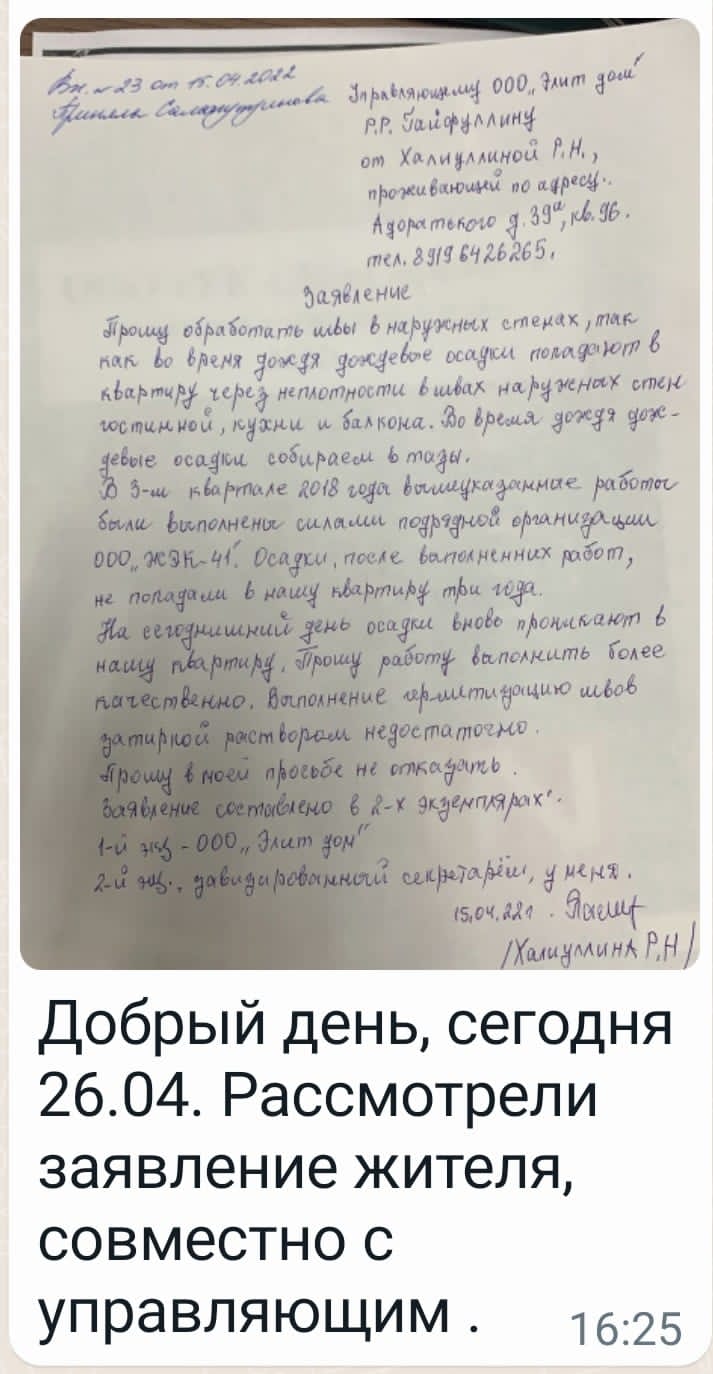 Вх. № 23 от 15.04.2022
Приняла Салахутдинова
Управляющему ООО „Элит дом"
Р.Р. Гайфуллину
от Халиуллиной Р.Н.,
проживающей по адресу:
Адоратского д. 39ᵃ, кв. 96.
тел. 89196426265.
Заявление
Прошу обработать швы в наружных стенах, так
как во время дождя дождевые осадки попадают в
квартиру через неплотности в швах наружных стен
гостинной, кухни и балкона. Во время дождя дож-
девые осадки собираем в тазы.
В 3-м квартале 2018 года вышеуказанные работы
были выполнены силами подрядной организации
ООО „ЖЭК-41". Осадки, после выполненных работ,
не попадали в нашу квартиру три года.
На сегоднишний день осадки вновь проникают в
нашу квартиру. Прошу работу выполнить более
качественно. Выполнение герметизацию швов
затиркой раствором недостаточно.
Прошу в моей просьбе не отказать.
Заявление составлено в 2-х экземплярах:
1-й экз - ООО „Элит дом"
2-й экз., завизированный секретарём, у меня.
15.04.22г.
/Халиуллина Р.Н/
Добрый день, сегодня
26.04. Рассмотрели
заявление жителя,
совместно с
управляющим .
16:25